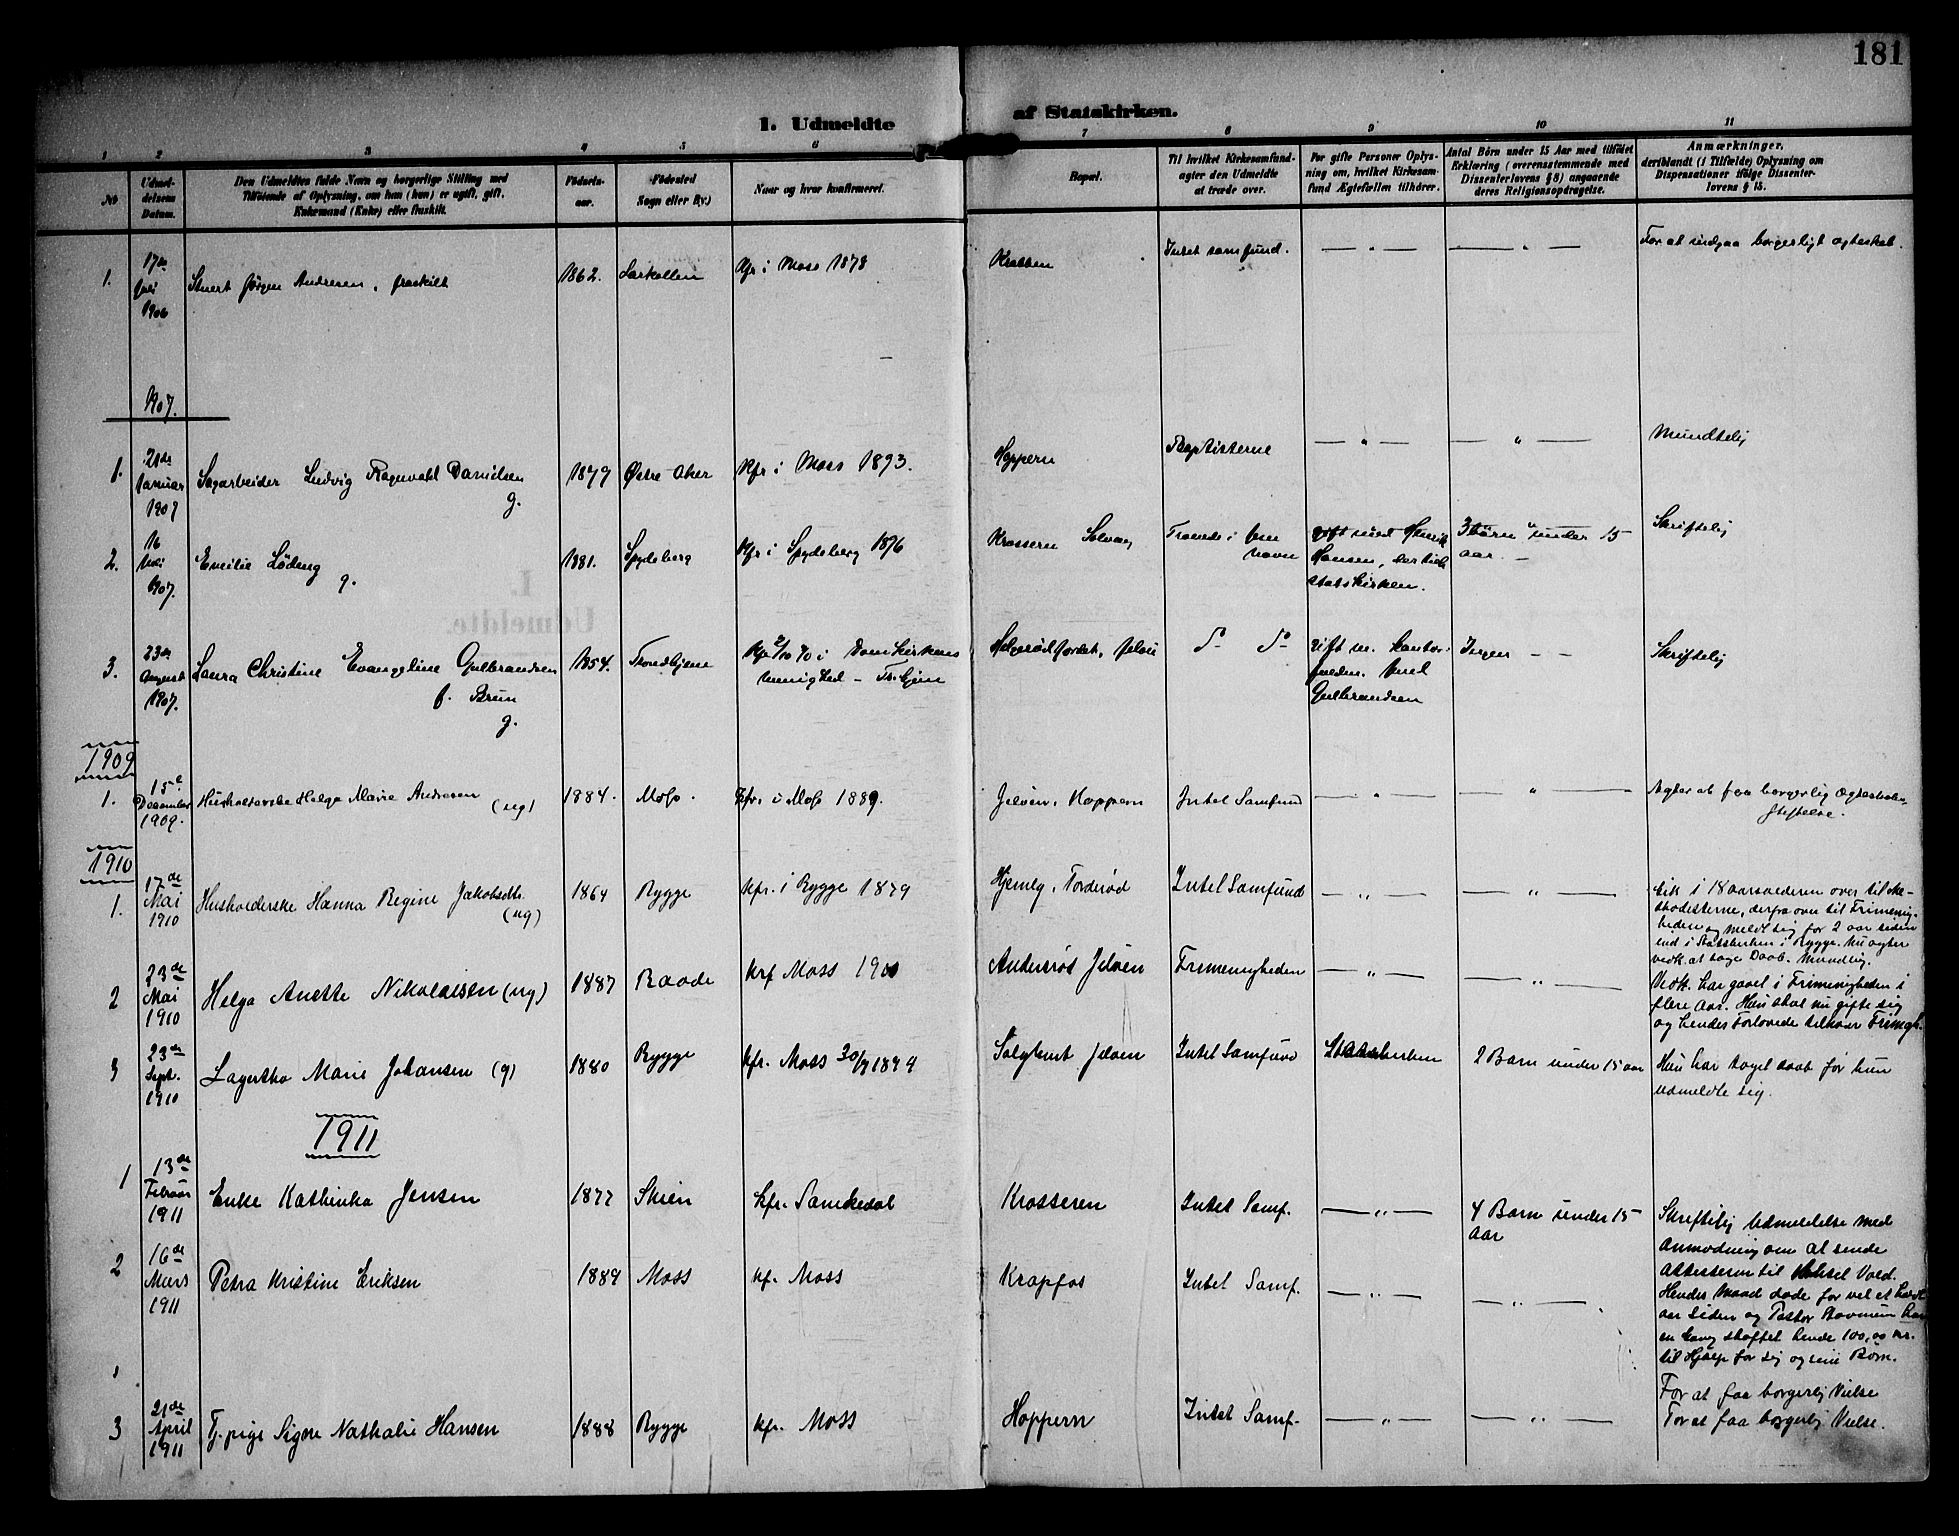 181
1. Udmeldte af Statskirken.
1 2 3 4 5 6 7 8 9 10 11
No
Udmel-
delsens
Datum.
Den Udmeldtes fulde Navn og borgerlige Stilling med
Tilføiende af Oplysning, om han (hun) er ugift, gift,
Enkemand (Enke) eller fraskilt.
Fødsels-
aar.
Fødested
Sogn eller By.)
Naar og hvor konfirmeret.
Bopæl.
Til hvilket Kirkesamfund-
agter den Udmeldte
at træde over.
For gifte Personer Oplys-
ning om, hvilket Kirkesam-
fund Ægtefællen tilhører.
Antal Børn under 15 Aar med tilføiet
Erklæring (overensstemmende med
Dissenterlovens § 8) angaaende
deres Religionsopdragelse.
Anmærkninger,
deriblandt (i Tilfælde) Oplysning om
Dispensationer ifølge Dissenter-
lovens § 15.
1.
17de
Juli
1906
Jørgen Andresen, fraskilt
1862.
Larkollen
Kfr i Moss 1878
Krabben
Intet samfund.
— " —
— " —
For at indgaa borgerligt ægteskab.
1907.
1.
21de
Januar
1907
Sagarbeider Ludvig Ragnvald Danielsen
g.
1879
Østre Aker
Kfr i Moss 1893.
Hoppern
Baptisterne
— " —
— " —
Mundtlig
2.
16
Mai
1907.
Emilie Løding
g.
1881.
Spydeberg
Kfr i Spydeberg 1896
Krosseren Solvang
Troende i Jesu
Navn
gift med Henrik
Hansen, der tilh
statskirken.
3 børn under 15
aar. —
Skriftelig
3.
23de
August
1907.
Laura Christine Evangeline Gulbrandsen
f. Brun
g.
1854.
Trondhjem
Kfr 2/10 70 i Domkirkens
menighed - Tr.hjem
Helgerødfordet, Jeløi
do do
gift m. kontor-
fuldm. Emil
Gulbrandsen
Ingen — —
Skriftelig
1909
1.
15de
December
1909.
Husholderske Helga Marie Andresen
(ug)
1884.
Moss.
Kfr. i Moss 1889.
Jeløen, Hoppern
Intet Samfund
— " —
— " —
Agter at faa borgerlig Ægteskabs-
stiftelse.
1910
1.
17de
Mai
1910
Husholderske Hanna Regine Jakobsdtr.
(ug)
1864
Rygge
kfr. i Rygge 1879
Hjemly, Torderød
Intet Samfund
— " —
— " —
Gik i 18 aarsalderen over til Me-
thodisterne, derfra over til Frimenig-
heden og meldt sig for 2 aar siden
ind i Statskirken i Rygge. Nu agter
vedk. at tage Daab. Mundtlig.
2
23de
Mai
1910
Helga Anette Nikolaisen (ug)
1887
Raade
krf Moss 1901
Anderød Jeløen
Frimenigheden
— " —
— " —
Vedk. har gaaet i Frimenigheden i
flere aar. Hun skal nu gifte sig
og hendes Forlovede tilhører Frimgh.
3
23de
Sept.
1910
Lagertha Marie Johansen (g)
1880
Rygge
kfr. Moss 30/9 1894
Solglømt Jeløen
Intet Samfund
Statskirken
2 Barn under 15 aar
Hun har taget daab før hun
udmeldte sig.
1911
1
13de
Februar
1911
Enke Kathinka Jensen
1877
Skien
kfr. Sannikedal
Krosseren
Intet Samf.
— " —
4 Barn under 15
aar
Skriftelig Udmeldelse med
Anmodning om at sende
Attesten til Vold.
Hendes Mand døde for vel et halvt
aar siden og Pastor har
en Gang skaffet hende 100,00 kr.
til Hjælp for sig og sine Børn.
2
16de
Mars
1911
Petra Kristine Eriksen
1889
Moss
kf. Moss
Krapfos
Intet Samf.
— " —
— " —
For at faa borgerlig Vielse
3
21de
April
1911
Tj. pige Signe Nathalie Hansen
1888
Rygge
kfr. Moss
Hoppern
Intet Samf.
— " —
— " —
For at faa borgerlig Vielse.